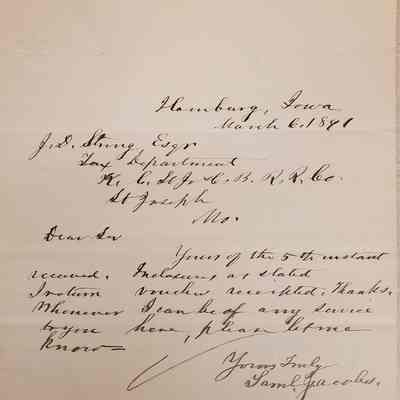 Hamburg, Iowa
March 6. 1891
J. D. Strong, Esqr
Tax Department
K. C. St Jo. & C. B. R. R. Co.
St Joseph
Mo.
Dear Sir
Yours of the 5th instant
received. Inclosures as stated
I return voucher receipted. Thanks.
Whenever I can be of any service
to you here, please let me
know =
Yours Truly
Saml. Jacobs.